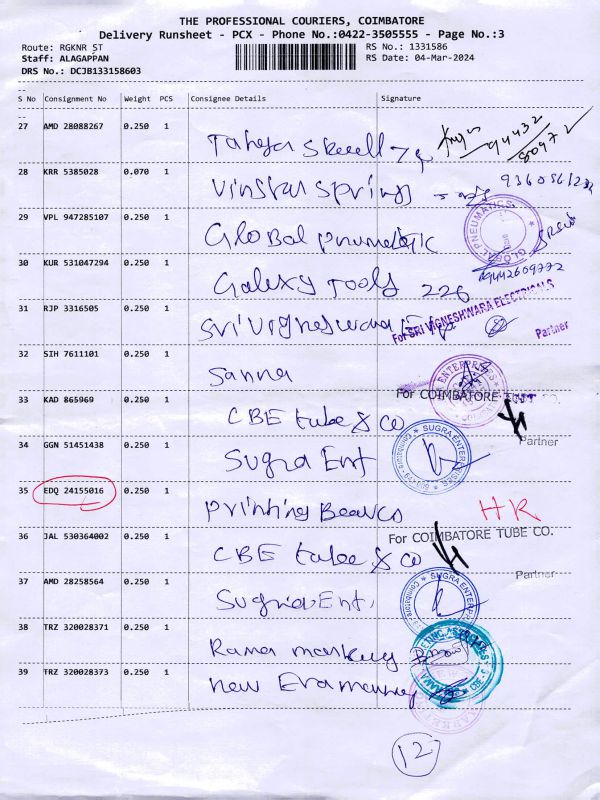 THE PROFESSIONAL COURIERS, COIMBATORE
Delivery Runsheet - PCX - Phone No.:0422-3505555 - Page No.:3
Route: RGKNR ST RS No.: 1331586
Staff: ALAGAPPAN RS Date: 04-Mar-2024
DRS No.: DCJB133158603
S No Consignment No Weight PCS Consignee Details Signature
27 AMD 28088267 0.250 1 94432
80972
28 KRR 5385028 0.070 1 Vinstar springs
29 VPL 947285107 0.250 1 Global pnumatic GLOBAL PNEUMATICS
30 KUR 531047294 0.250 1 Galexy Tools 226 9442609772
31 RJP 3316505 0.250 1 Sri Vigneswara For SRI VIGNESHWARA ELECTRICALS
Partner
32 SIH 7611101 0.250 1 Sanna ENTERPRISES
33 KAD 865969 0.250 1 CBE tube & co For COIMBATORE TUBE CO.
Partner
34 GGN 51451438 0.250 1 Sugra Ent SUGRA ENTERPRISES
35 EDQ 24155016 0.250 1 Printing HR
36 JAL 530364002 0.250 1 CBE tube & co For COIMBATORE TUBE CO.
Partner
37 AMD 28258564 0.250 1 Sugra Ent. SUGRA ENTERPRISES
38 TRZ 320028371 0.250 1 Rama
39 TRZ 320028373 0.250 1 New Era
12